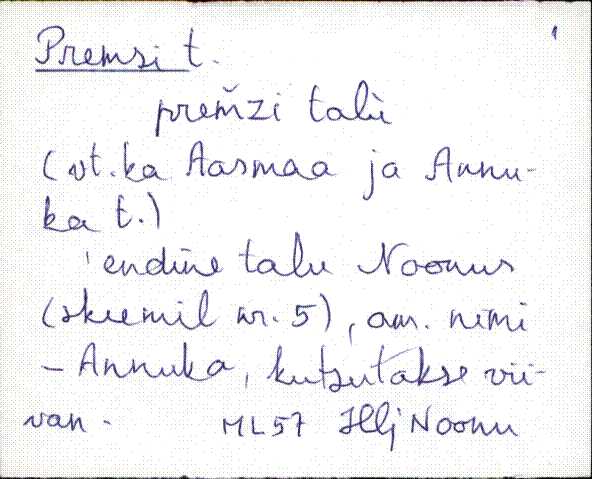 Premsi t.
prem̆zi talù
(vt. ka Aasmaa ja Annu-
ka t.)
endine talu Noonus
(skeemil nr. 5), am. nimi
– Annuka, kutsutakse vii-
van.
ML57 Hlj Noonu